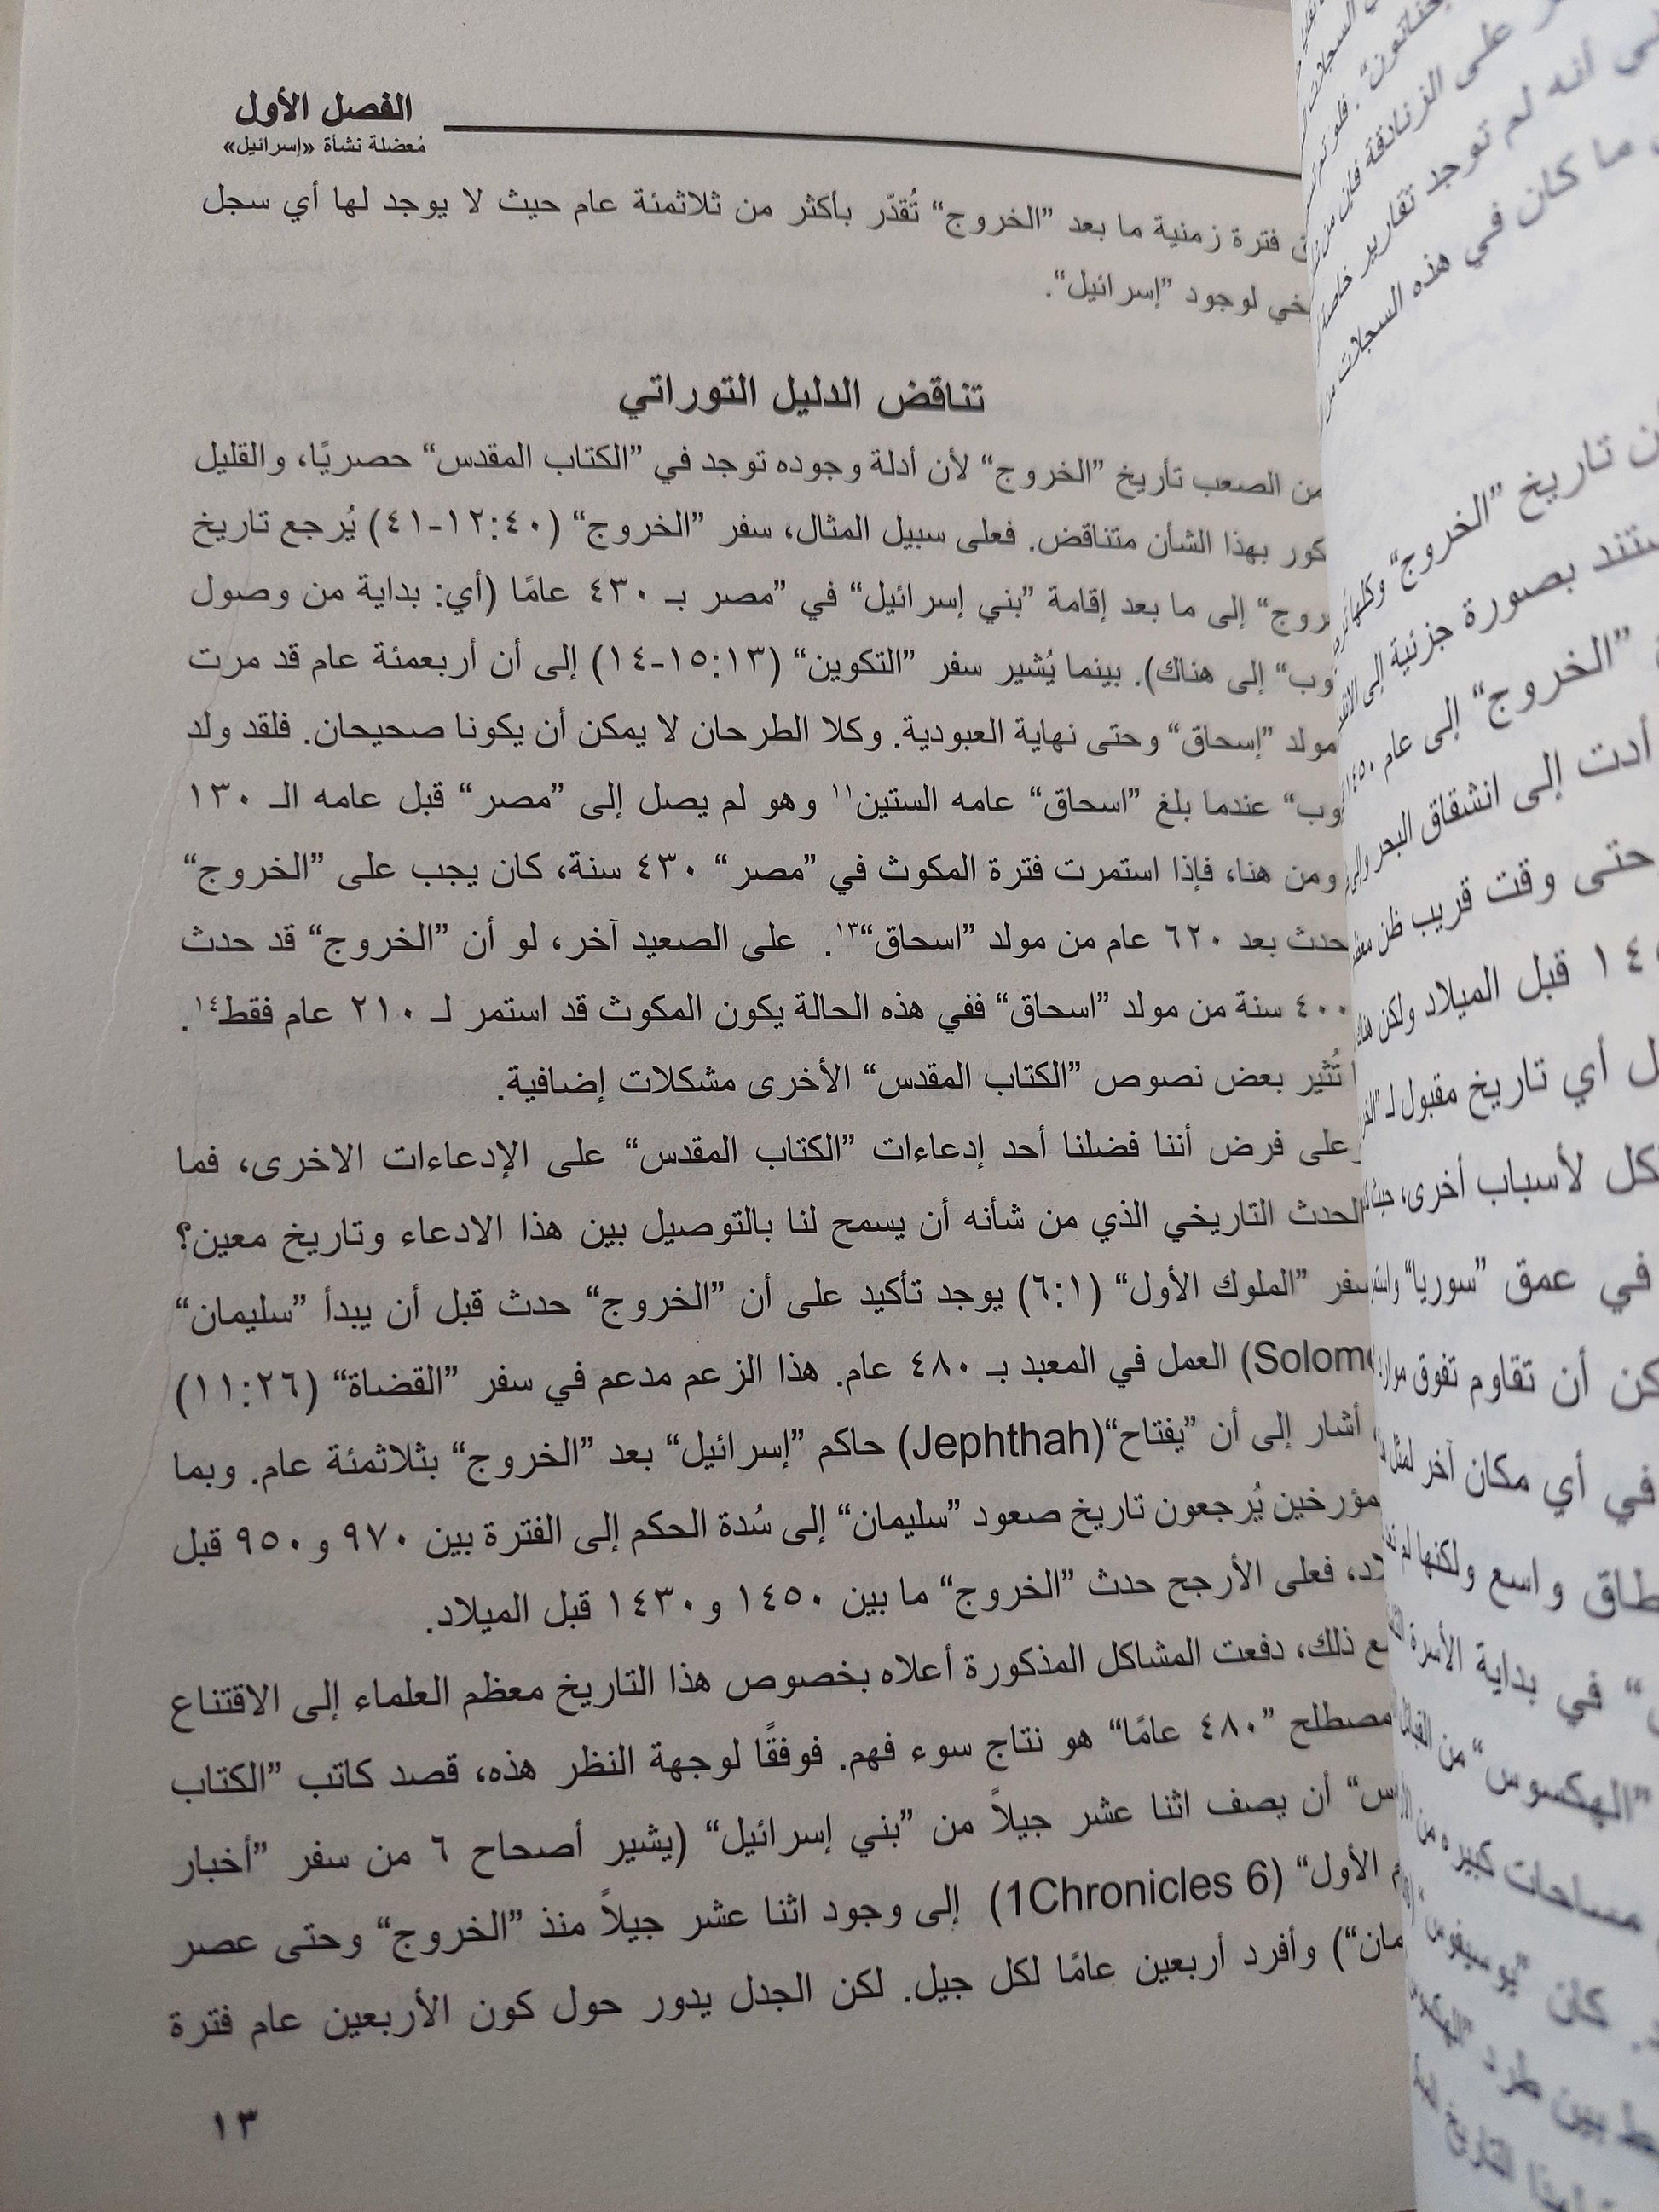 الفصل الأول
مُعضلة نشأة «إسرائيل»
فترة زمنية ما بعد ”الخروج“ تُقدّر بأكثر من ثلاثمئة عام حيث لا يوجد لها أي سجل
لوجود ”إسرائيل“.
تناقض الدليل التوراتي
من الصعب تأريخ ”الخروج“ لأن أدلة وجوده توجد في ”الكتاب المقدس“ حصريًا، والقليل
بهذا الشأن متناقض. فعلى سبيل المثال، سفر ”الخروج“ (١٢:٤٠-٤١) يُرجع تاريخ
إلى ما بعد إقامة ”بني إسرائيل“ في ”مصر بـ ٤٣٠ عامًا (أي: بداية من وصول
إلى هناك). بينما يُشير سفر ”التكوين“ (١٥:١٣-١٤) إلى أن أربعمئة عام قد مرت
مولد ”إسحاق“ وحتى نهاية العبودية. وكلا الطرحان لا يمكن أن يكونا صحيحان. فلقد ولد
عندما بلغ ”اسحاق“ عامه الستين١١ وهو لم يصل إلى ”مصر“ قبل عامه الـ ١٣٠
ومن هنا، فإذا استمرت فترة المكوث في ”مصر“ ٤٣٠ سنة، كان يجب على ”الخروج“
حدث بعد ٦٢٠ عام من مولد ”اسحاق“١٣. على الصعيد آخر، لو أن ”الخروج“ قد حدث
٤٠٠ سنة من مولد ”اسحاق“ ففي هذه الحالة يكون المكوث قد استمر لـ ٢١٠ عام فقط١٤.
تُثير بعض نصوص ”الكتاب المقدس“ الأخرى مشكلات إضافية.
وعلى فرض أننا فضلنا أحد إدعاءات ”الكتاب المقدس“ على الإدعاءات الاخرى، فما
الحدث التاريخي الذي من شأنه أن يسمح لنا بالتوصيل بين هذا الادعاء وتاريخ معين؟
سفر ”الملوك الأول“ (٦:١) يوجد تأكيد على أن ”الخروج“ حدث قبل أن يبدأ ”سليمان“
العمل في المعبد بـ ٤٨٠ عام. هذا الزعم مدعم في سفر ”القضاة“ (١١:٢٦)
أشار إلى أن ”يفتاح“(Jephthah) حاكم ”إسرائيل“ بعد ”الخروج“ بثلاثمئة عام. وبما
مؤرخين يُرجعون تاريخ صعود ”سليمان“ إلى سُدة الحكم إلى الفترة بين ٩٧٠ و٩٥٠ قبل
فعلى الأرجح حدث ”الخروج“ ما بين ١٤٥٠ و١٤٣٠ قبل الميلاد.
ذلك، دفعت المشاكل المذكورة أعلاه بخصوص هذا التاريخ معظم العلماء إلى الاقتناع
مصطلح ”٤٨٠ عامًا“ هو نتاج سوء فهم. فوفقًا لوجهة النظر هذه، قصد كاتب ”الكتاب
أن يصف اثنا عشر جيلاً من ”بني إسرائيل“ (يشير أصحاح ٦ من سفر ”أخبار
الأول“ (1Chronicles 6) إلى وجود اثنا عشر جيلاً منذ ”الخروج“ وحتى عصر
وأفرد أربعين عامًا لكل جيل. لكن الجدل يدور حول كون الأربعين عام فترة
١٣
على الزنادقة
أنه لم توجد تقارير خاصة
ما كان في هذه السجلات
تاريخ ”الخروج“ وكلها
بصورة جزئية إلى
”الخروج“ إلى عام
أدت إلى انشقاق البحر
وحتى وقت قريب ظن
قبل الميلاد ولكن
أي تاريخ مقبول لـ
لأسباب أخرى،
في عمق ”سوريا“
أن تقاوم تفوق
في أي مكان آخر لمثل
واسع ولكنها لم
في بداية الأسرة
”الهكسوس“ من
مساحات كبيره من
كان ”يوسيفوس“
بين طرد
التاريخ